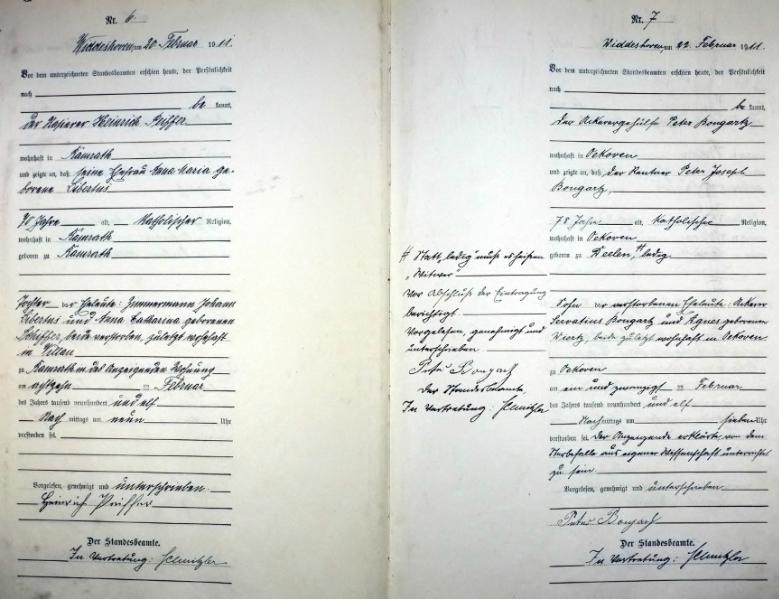 Nr. 6
Widdeshoven, am 20 Februar 1911.
Vor dem unterzeichneten Standesbeamten erschien heute, der Persönlichkeit
nach
be kannt,
der Heinrich Peiffer
wohnhaft in Ramrath
und zeigte an, daß seine Ehefrau Anna Maria ge-
borene Libertus
70 Jahre alt, Katholischer Religion,
wohnhaft in Ramrath
geboren zu Ramrath
Tochter der Eheleute: Zimmermann Johann
Libertus und Anna Catharina geborenen
Schiffer, beide verstorben, zuletzt wohnhaft
in Villau
zu Ramrath in des Anzeigenden Wohnung
am achtzehn ten Februar
des Jahres tausend neunhundert und elf
Nach mittags um neun Uhr
verstorben sei.
Vorgelesen, genehmigt und unterschrieben
Heinrich Peiffer
Der Standesbeamte.
In Vertretung: Schnitzler
Nr. 7
Widdeshoven, am 22. Februar 1911.
Vor dem unterzeichneten Standesbeamten erschien heute, der Persönlichkeit
nach
be kannt,
der Ackerergehülfe Peter Bongartz
wohnhaft in Oekoven
und zeigte an, daß der Rentner Peter Joseph
Bongartz,
78 Jahre alt, katholische Religion,
wohnhaft in Oekoven
geboren zu Deelen, # ledig.
Sohn der verstorbenen Eheleute: Ackerer
Servatius Bongartz und Agnes geborenen
beide zuletzt wohnhaft in Oekoven
zu Oekoven
am ein und zwanzigsten Februar
des Jahres tausend neunhundert und elf
Nachmittags um sieben Uhr
verstorben sei. Der Anzeigende erklärte, von dem
Sterbefalle aus eigener Wissenschaft unterrichtet
zu sein.
Vorgelesen, genehmigt und unterschrieben
Peter Bongartz
Der Standesbeamte.
In Vertretung: Schnitzler
# Statt „ledig" muß es heißen
„Witwer"
Vor Abschluß der Eintragung
berichtigt.
Vorgelesen, genehmigt und
unterschrieben
Peter Bongartz
Der Standesbeamte,
In Vertretung: Schnitzler